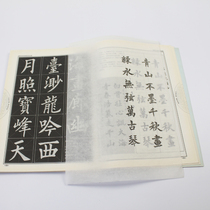 青山不墨千秋畫
綠水無弦萬古琴
臺渺龍吟西
月照寶峰天